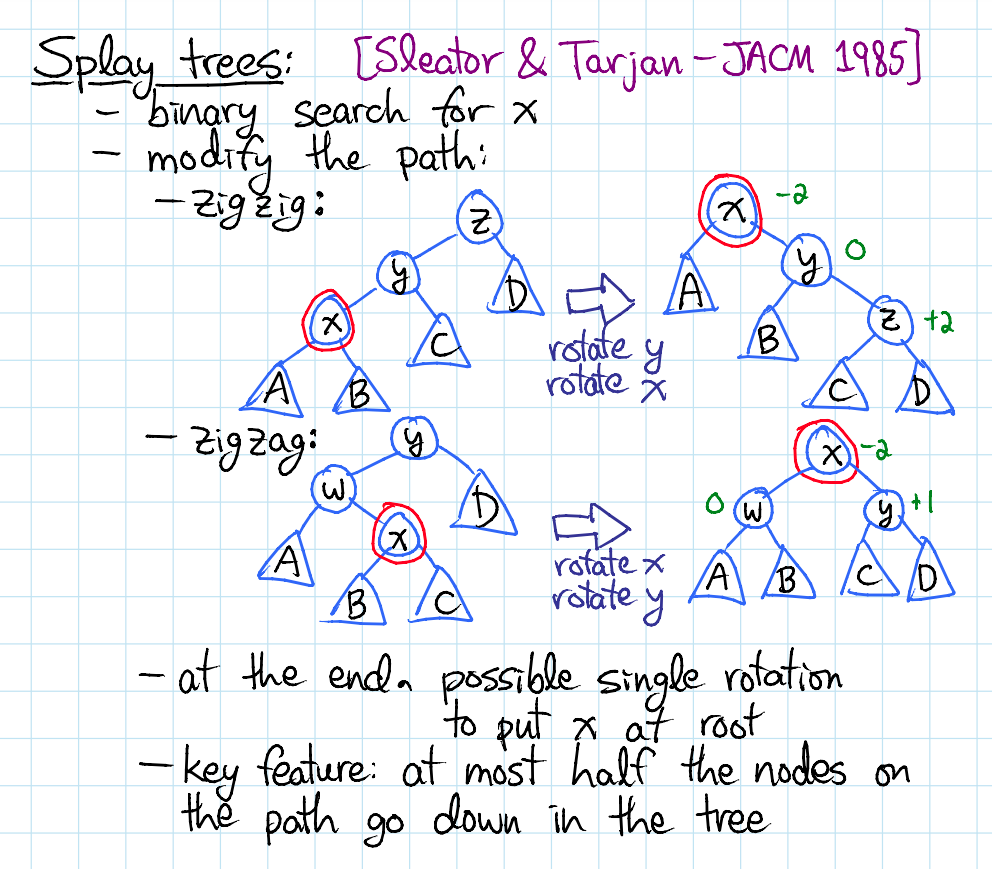 Splay trees: [Sleator & Tarjan – JACM 1985]
– binary search for x
– modify the path:
– zigzig:
z
y
D
x
C
A
B
rotate y
rotate x
x -2
A
y 0
B
z +2
C
D
– zigzag:
y
w
D
A
x
B
C
rotate x
rotate y
x -2
0 w
y +1
A
B
C
D
– at the end, possible single rotation
to put x at root
– key feature: at most half the nodes on
the path go down in the tree